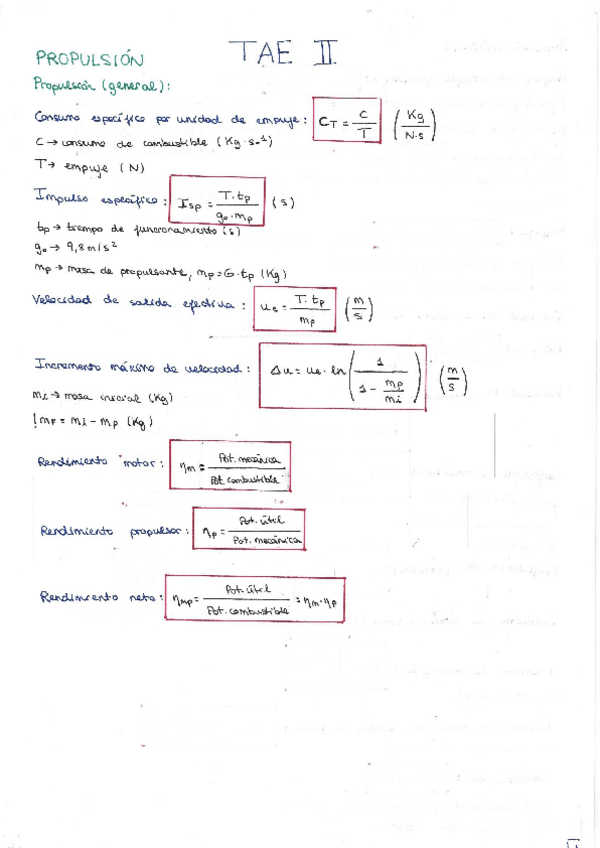 TAE II
PROPULSIÓN
Propulsión (general):
Consumo específico por unidad de empuje: C_T = C / T (Kg / N·s)
C → consumo de combustible (Kg·s⁻¹)
T → empuje (N)
Impulso específico: I_sp = T·t_p / g₀·m_p (s)
t_p → tiempo de funcionamiento (s)
g₀ → 9,8 m/s²
m_p → masa de propulsante, m_p = G·t_p (Kg)
Velocidad de salida efectiva: u_e = T·t_p / m_p (m / s)
Incremento máximo de velocidad: Δu = u_e · ln (1 / (1 - m_p / m_i)) (m / s)
m_i → masa inicial (Kg)
m_F = m_i - m_p (Kg)
Rendimiento motor: η_m = Pot. mecánica / Pot. combustible
Rendimiento propulsor: η_p = Pot. útil / Pot. mecánica
Rendimiento neto: η_mp = Pot. útil / Pot. combustible = η_m · η_p